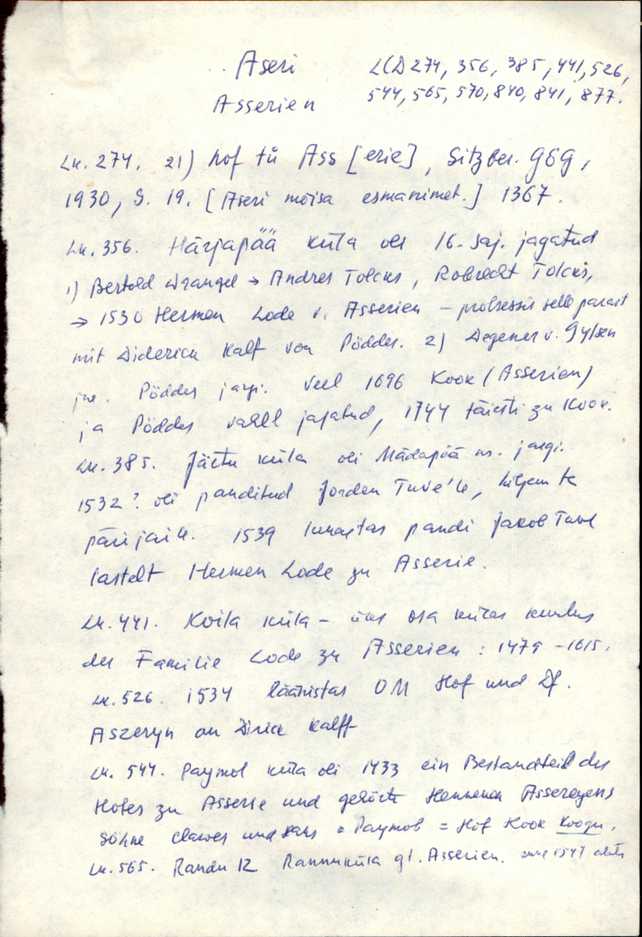 Aseri LCD 274, 356, 385, 441, 526,
Asserien 544, 565, 570, 840, 841, 877.
Lk. 274. 21) hof tů Ass [erie], Sitzber. GEG,
1930, S. 19. [Aseri moisa esmamimet.] 1367.
Lk. 356. Härjapää küla oli 16. saj. jagatud
1) Bertold Wrangel → Andres Tolcks, Robrecht Tolcks,
→ 1530 Hermen Lode v. Asserien – protsessis selle pärast
mit Diderich Kalf von Pöddes. 2) Degener v. Gylsen
Pöddes järgi. Veel 1696 Kook (Asserien)
ja Pöddes vahel jagatud, 1744 täiesti zu Kook.
Lk. 385. küla oli Mädapää m. järgi.
1532? oli panditud Jorden Tuve'le, hiljem ta
pärijaile. 1539 lunastas pandi Jakob Tuve
lastelt Hermen Lode zu Asserie.
Lk. 441. Koila küla – üks osa külas kuulus
der Familie Lode zu Asserien: 1479 – 1615.
Lk. 526. 1534 läänistas OM Hof und Df.
Aszeryn an Dirick Kalff
Lk. 544. Paymol küla oli 1433 ein Bestandteil des
Hofes zu Asserie und gehörte Hennenen Assereyens
Söhne Clawes und Hans = Paymob = Hof Kook Koogu.
Lk. 565. Randu 12 Rannuküla gt. Asserien. 1547